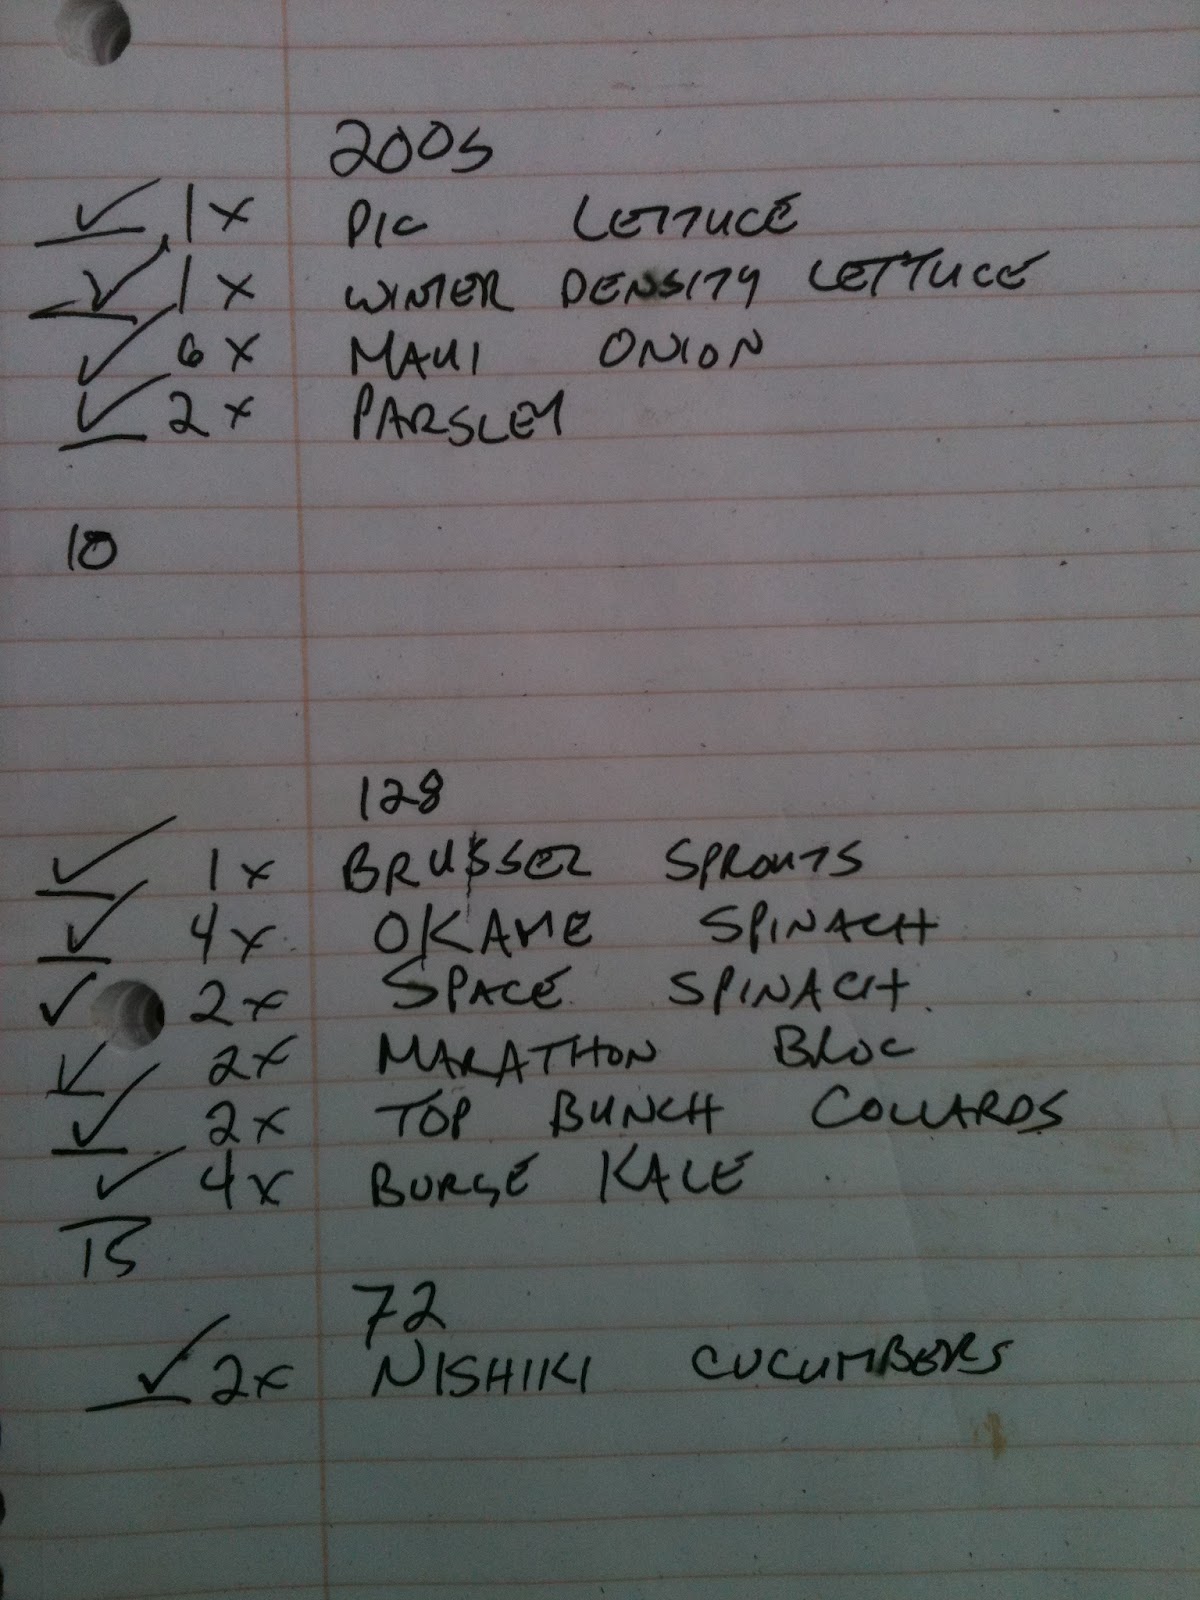 200s
✓ 1x PIC LETTUCE
✓ 1x WINTER DENSITY LETTUCE
✓ 6x MAUI ONION
✓ 2x PARSLEY
10
128
✓ 1x BRUSSEL SPROUTS
✓ 4x OKAME SPINACH
✓ 2x SPACE SPINACH
✓ 2x MARATHON BROC
✓ 2x TOP BUNCH COLLARDS
✓ 4x KALE
15
72
✓ 2x NISHIKI CUCUMBERS